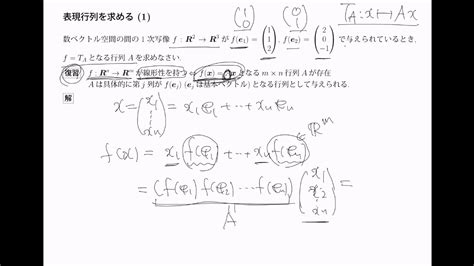 表現行列を求める (1)
(1 0) (0 1) T_A : x ↦ Ax
数ベクトル空間の間の 1 次写像 f : R² → R³ が f(e₁) = (1 1 2), f(e₂) = (2 0 −1) で与えられているとき,
f = T_A となる行列 A を求めなさい.
復習 f : Rⁿ → Rᵐ が線形性を持つ ⇔ f(x) = Ax となる m × n 行列 A が存在
A は具体的に第 j 列が f(e_j) (e_j は基本ベクトル) となる行列として与えられる.
解 x = (x₁ ⋮ xₙ) = x₁e₁ + ⋯ + xₙeₙ
f(x) = x₁f(e₁) + ⋯ + xₙf(eₙ) ∈ Rᵐ
= (f(e₁) f(e₂) ⋯ f(eₙ)) (x₁ x₂ ⋮ xₙ) =
A